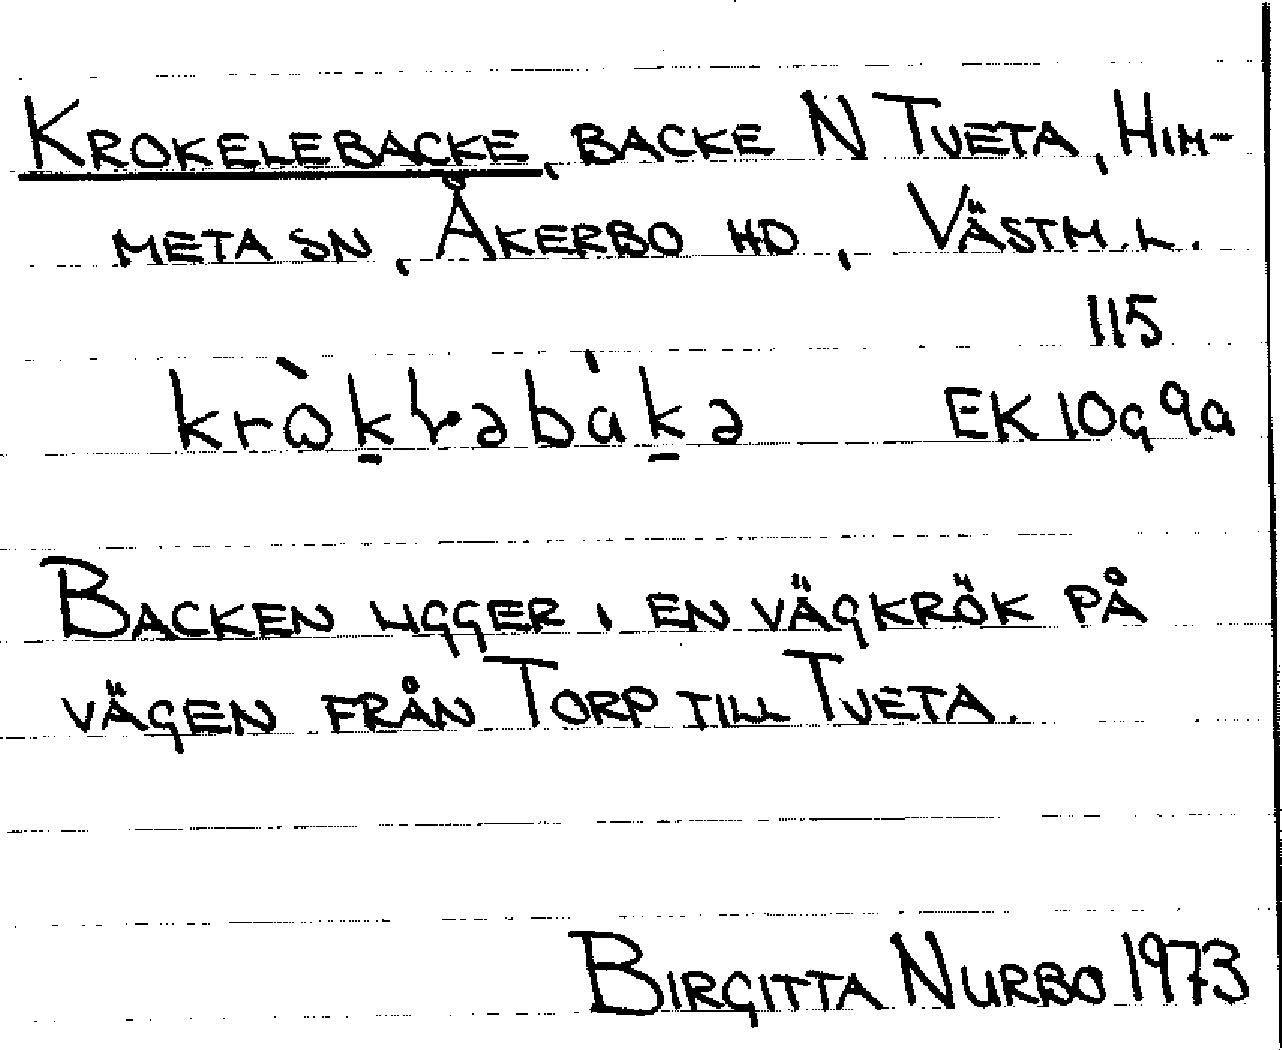 KROKELEBACKE, BACKE N TVETA, HIM-
META SN, ÅKERBO HD, VÄSTM. L.
115
EK 10g 9a
BACKEN LIGGER I EN VÄGKRÖK PÅ
VÄGEN FRÅN TORP TILL TVETA.
BIRGITTA NURBO 1973